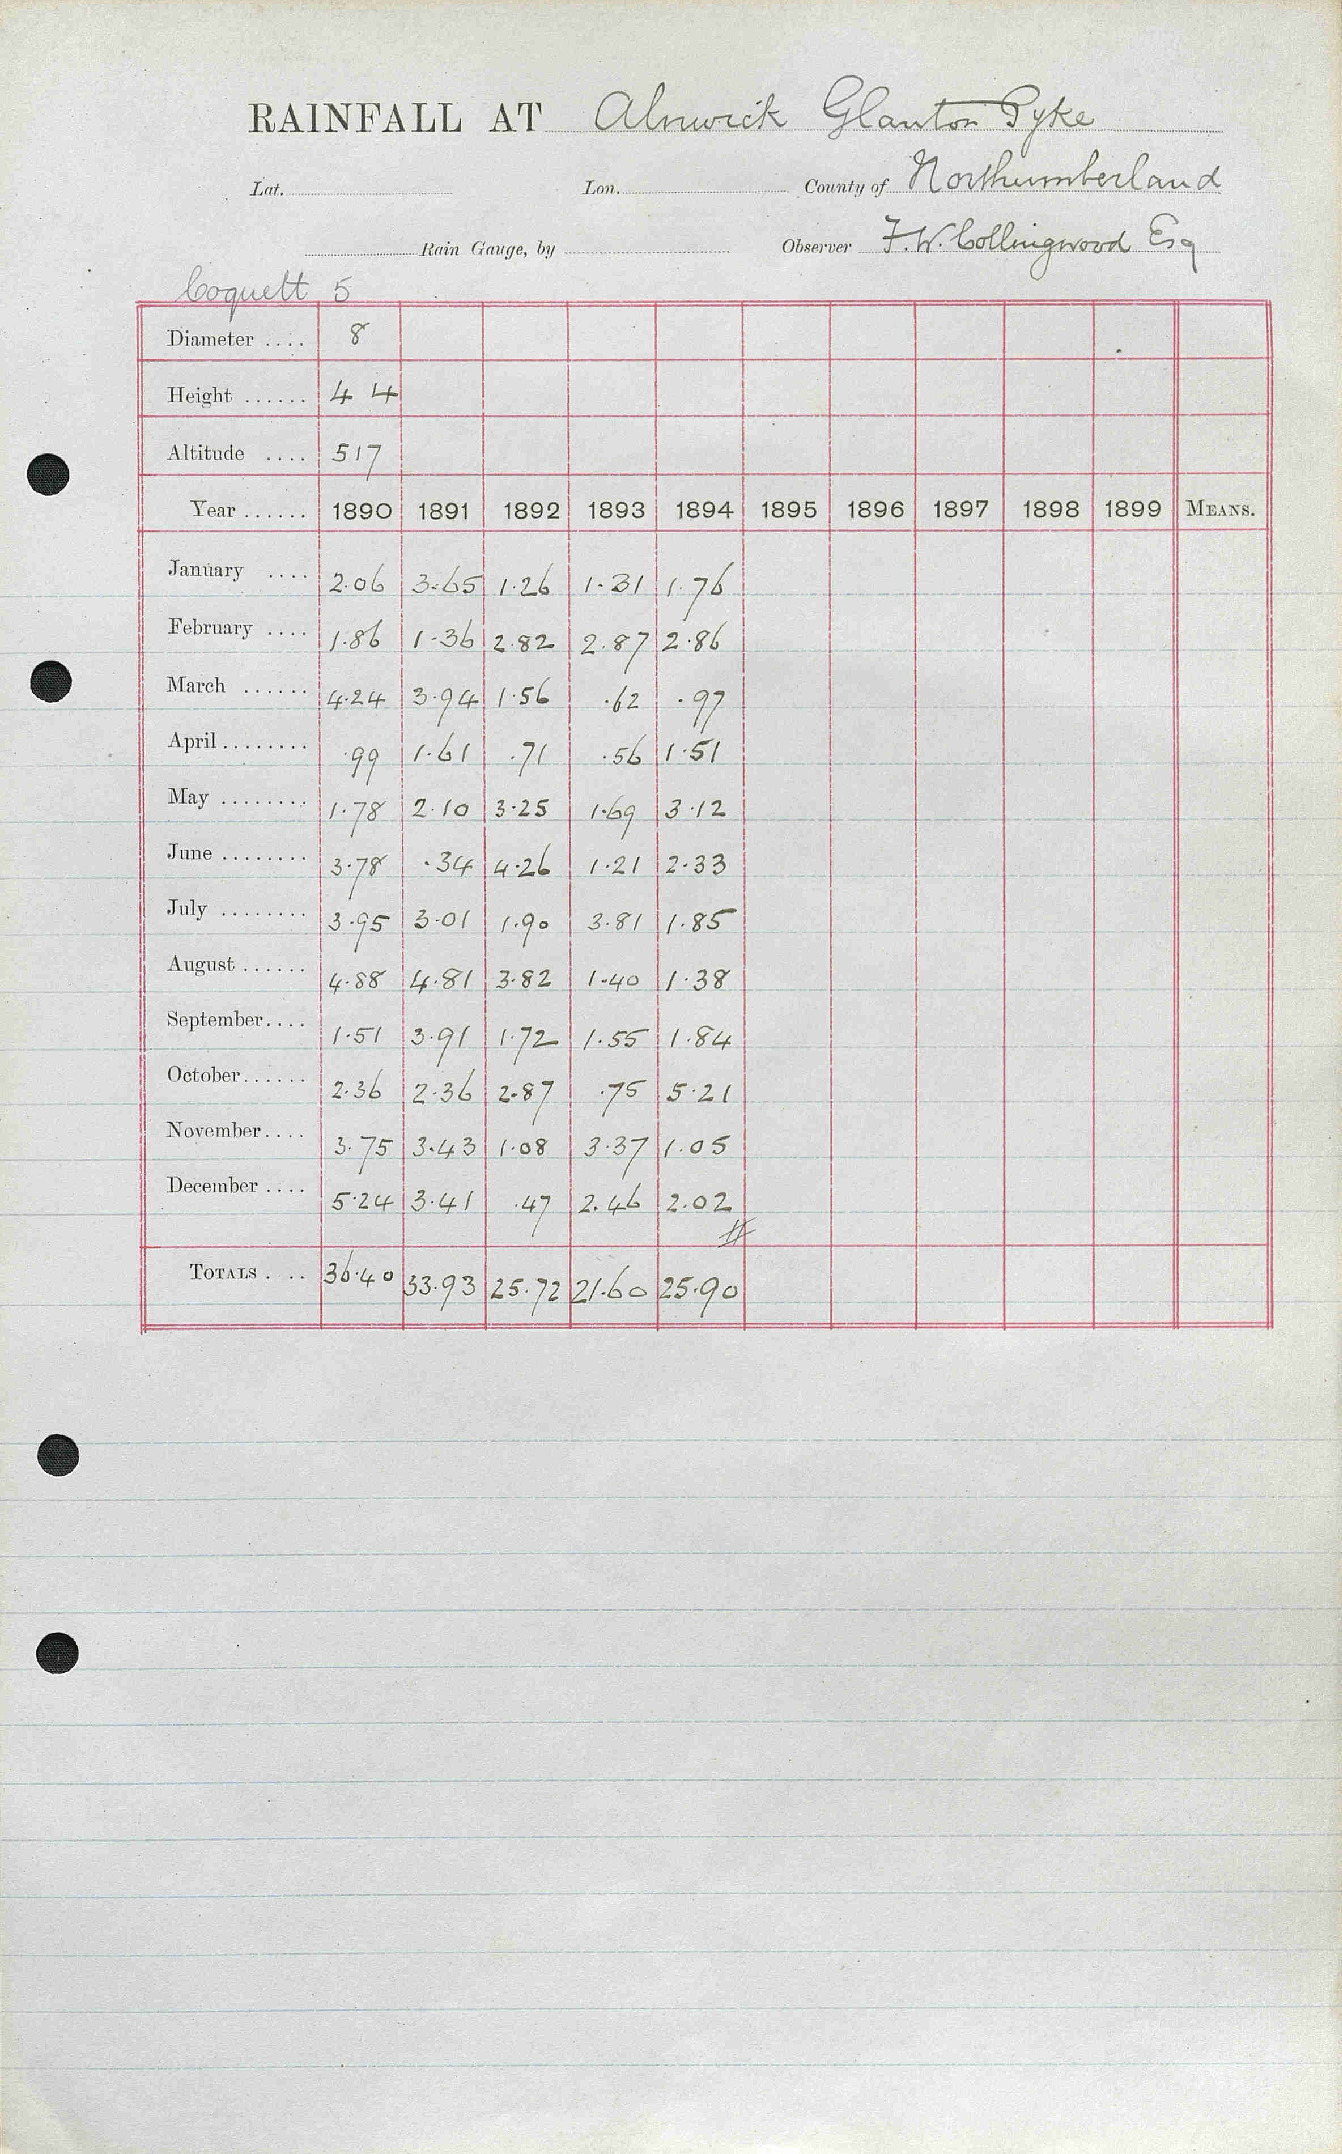 RAINFALL AT Alnwick Glanton Pyke
Lat. Lon. County of Northumberland
Rain Gauge, by Observer F. W. Collingwood Esq
Coquett 5
Diameter .... 8
Height ...... 4 4
Altitude .... 517
Year ...... 1890 1891 1892 1893 1894 1895 1896 1897 1898 1899 MEANS.
January .... 2.06 3.65 1.26 1.31 1.76
February .... 1.86 1.36 2.82 2.87 2.86
March ...... 4.24 3.94 1.56 .62 .97
April ........ .99 1.61 .71 .56 1.51
May ........ 1.78 2.10 3.25 1.69 3.12
June ........ 3.78 .34 4.26 1.21 2.33
July ........ 3.95 3.01 1.90 3.81 1.85
August ...... 4.88 4.81 3.82 1.40 1.38
September.... 1.51 3.91 1.72 1.55 1.84
October...... 2.36 2.36 2.87 .75 5.21
November.... 3.75 3.43 1.08 3.37 1.05
December .... 5.24 3.41 .47 2.46 2.02
TOTALS . .. 36.40 33.93 25.72 21.60 25.90